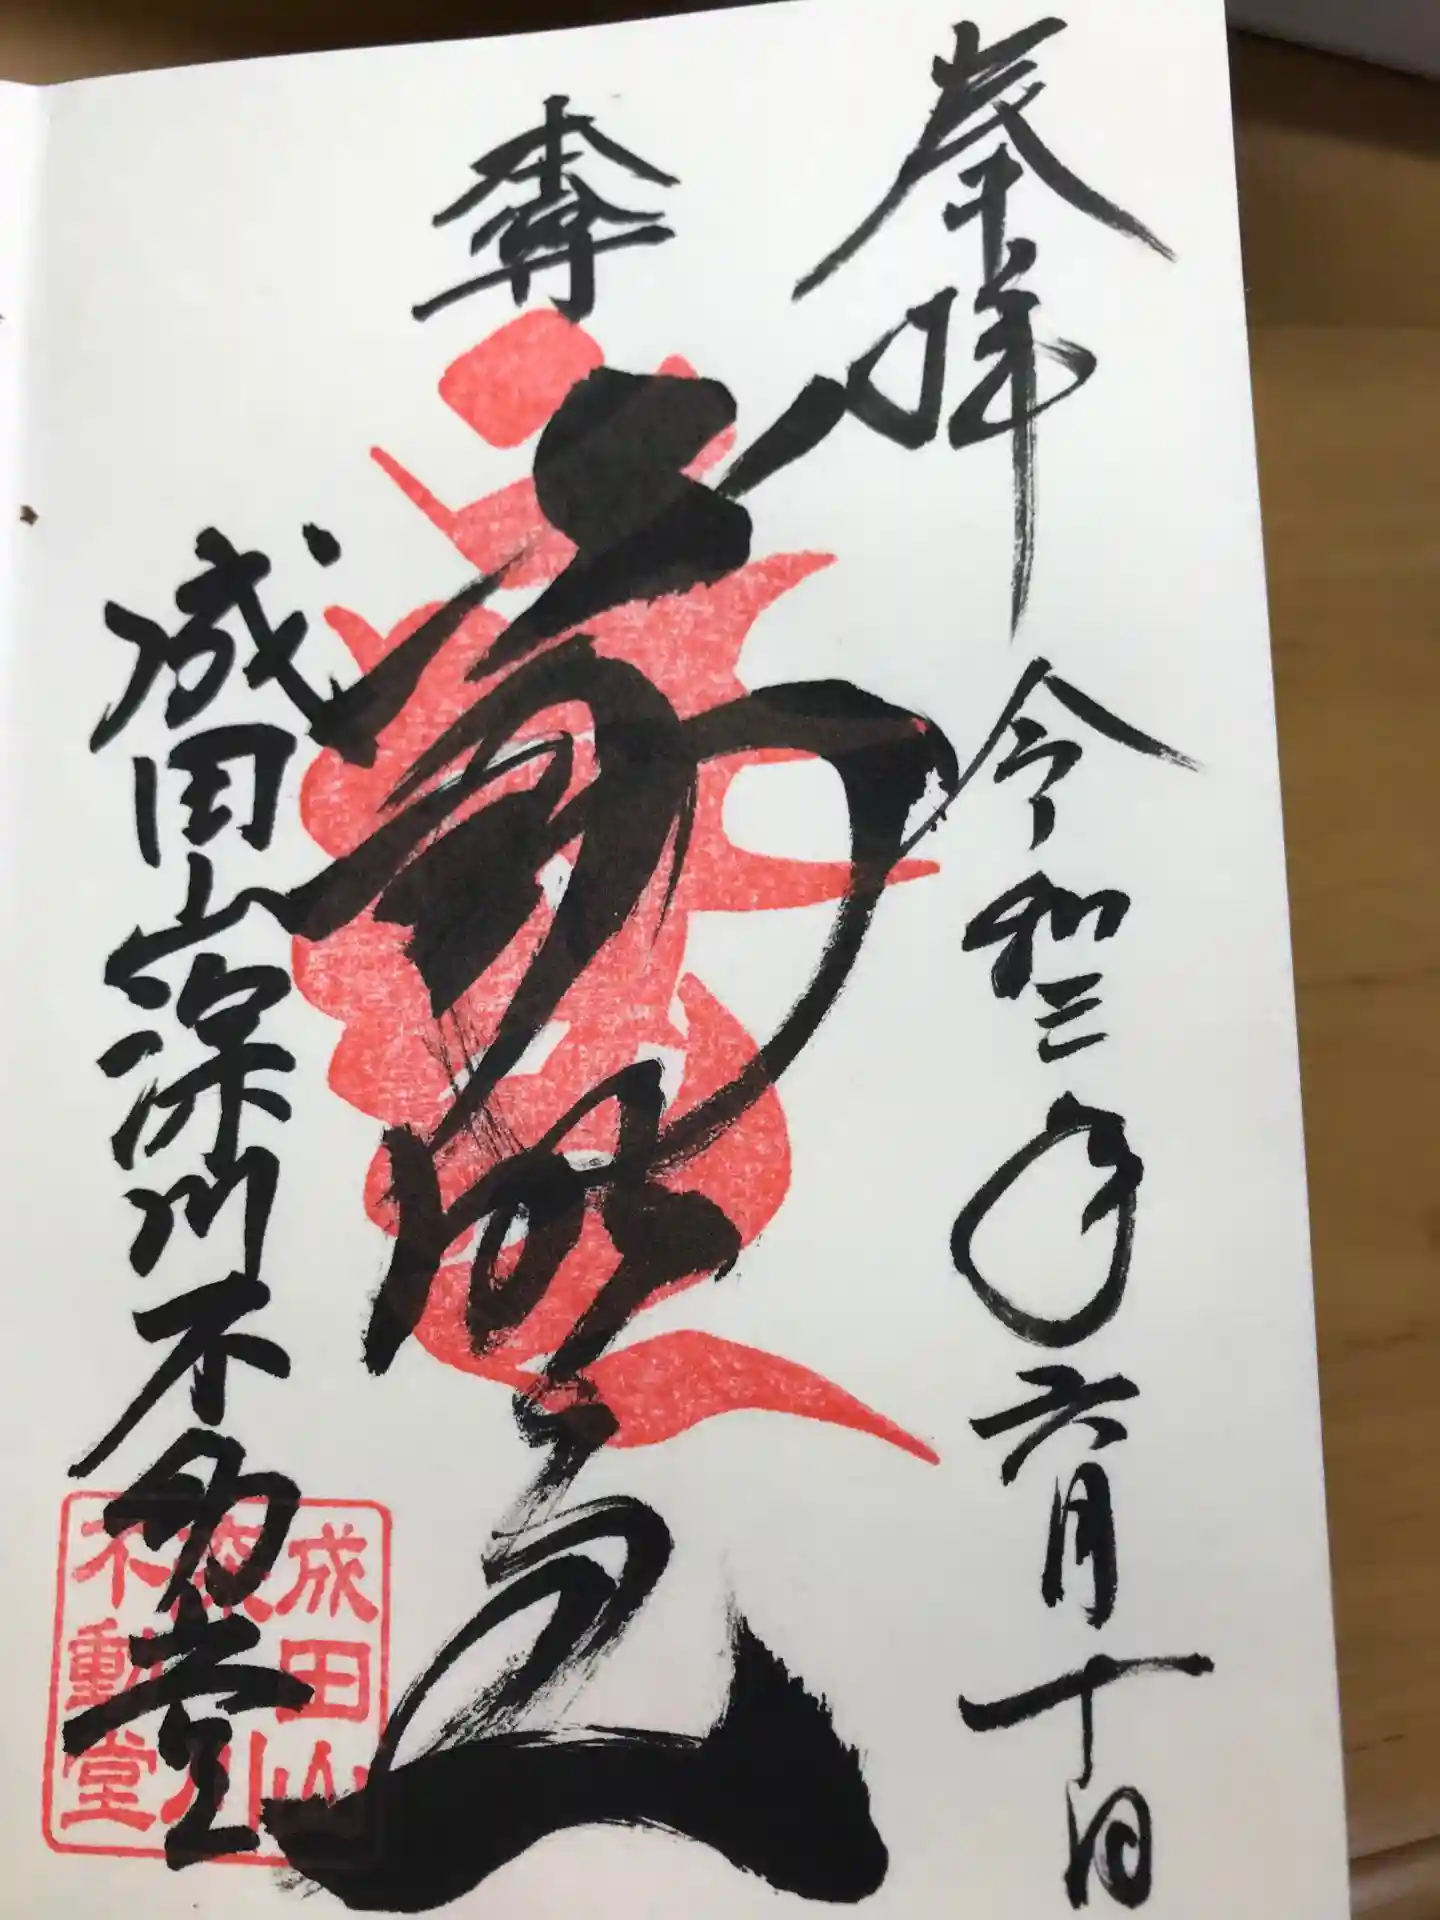 奉拝
令和三年六月十日
本尊
不動明王
成田山深川不動堂
成田山
深川
不動堂